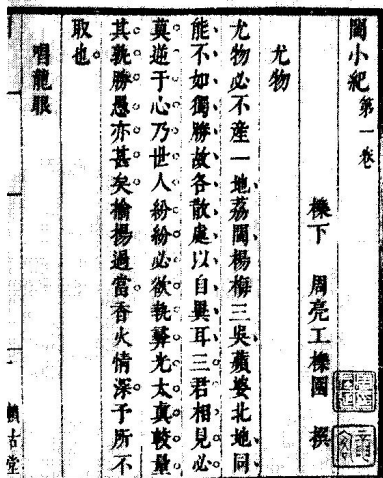 閩小紀第一卷
櫟下　周亮工櫟園　撰
尤物
尤物必不產一地荔閩楊梅三吳蘋婆北地同
能不如獨勝故各散處以自異耳三君相見必
莫逆于心乃世人紛紛必欲執彝光太真較量
其孰勝愚亦甚矣揄揚過當香火情深予所不
取也
唱龍眼
古堂